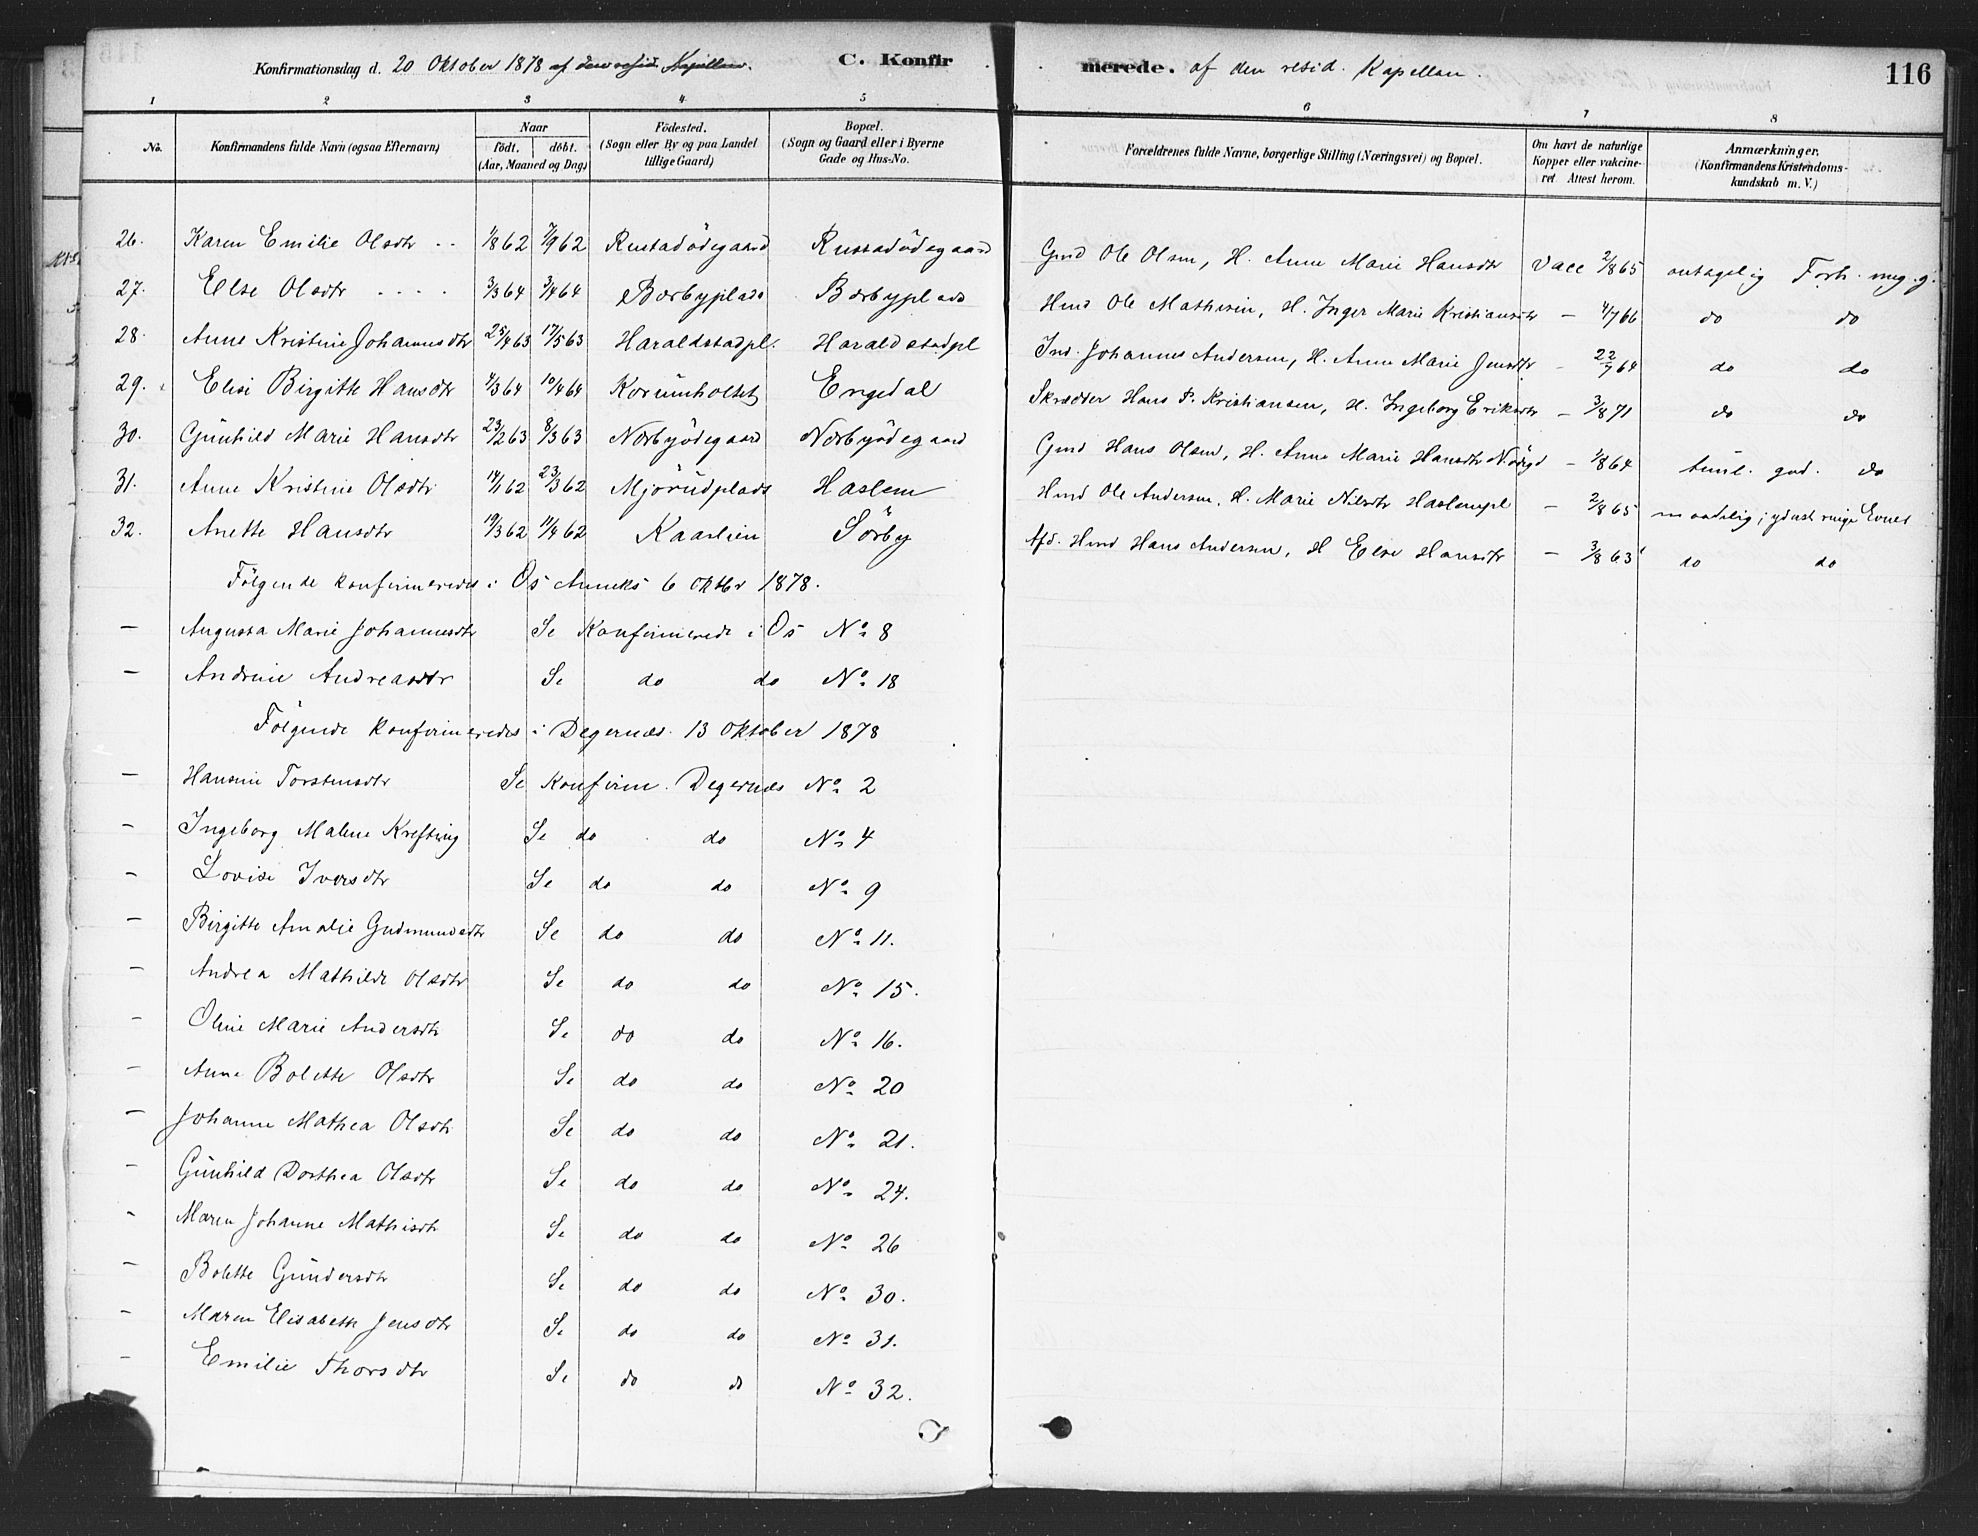 Konfirmationsdag d. 20 Oktober 1878 af den resid. Kapellan. C. Konfirmerede. af den resid. Kapellan. 116
1 2 3 4 5 6 7 8
No. Konfirmandens fulde Navn (ogsaa Efternavn) Naar födt. döbt. (Aar, Maaned og Dag) Födested. (Sogn eller By og paa Landet tillige Gaard) Bopæl. (Sogn og Gaard eller i Byerne Gade og Hus-No. Forældrenes fulde Navne, borgerlige Stilling (Næringsvei) og Bopæl. Om havt de naturlige Kopper eller vakcineret Attest herom. Anmærkninger. (Konfirmandens Kristendomskundskab m. V.)
26. Karen Emilie Olsdtr 1/8 62 7/9 62 Rustadödegaard Rustadödegaard Gmd Ole Olsen, H. Anne Marie Hansdtr Vacc 2/8 65 antagelig Forh. meg. g.
27. Else Olsdtr 3/3 64 3/4 64 Bærbyplads Bærbyplads Hmd Ole Mathisen, H. Inger Marie Kristiansdtr – 4/7 66 do do
28. Anne Kristine Johannesdtr 25/4 63 17/5 63 Haraldstadpl. Haraldstadpl Ind. Johannes Andersen, H. Anne Marie Jensdtr - 22/7 64 do do
29. Elise Birgitte Hansdtr 4/3 64 10/4 64 Kornmholtet Engedal Skrædder Hans P. Kristiansen, H. Ingeborg Eriksdtr – 3/8 71 do do
30. Gunhild Marie Hansdtr 23/2 63 8/3 63 Nørbyödegaard Nørbyödegaard Gmd Hans Olsen, H. Anne Marie Hansdtr Nödegd – 1/8 64 teml. god. do
31. Anne Kristine Olsdtr 14/1 62 23/3 62 Mjörudplads Haslem Hmd Ole Andersen, H. Marie Nilsdtr Haslempl – 2/8 65 maadelig; yderst ringe Evner
32. Anette Hansdtr 19/3 62 11/4 62 Kaaslien Sörby Afd. Hmd Hans Andersen, H Else Hansdtr – 3/8 63 do do
Fölgende konfirmeredes i Os Anneks 6 Oktbr 1878.
— Augusta Marie Johannesdtr Se Konfirmerede i Os No 8
— Andrine Andreasdtr Se do do No 18
Fölgende konfirmeredes i Degernæs 13 Oktober 1878
— Hansine Torstensdtr Se Konfirm. Degernæs No 2
- Ingeborg Malene Krefting Se do do No 4
- Lovise Iversdtr Se do do No 9
- Birgitte Amalie Gudmundsdtr Se do do No 11.
- Andrea Mathilde Olsdtr Se do do No 15.
- Oline Marie Andersdtr Se do do No 16.
- Anne Bolette Olsdtr Se do do No 20
- Johanne Mathea Olsdtr Se do do No 21.
- Gunhild Dorthea Olsdtr Se do do No 24.
- Maren Johanne Mathisdtr Se do do No 26
- Bolette Gundersdtr Se do do No 30.
- Maren Elisabeth Jensdtr Se do do No 31.
- Emilie Thorsdtr Se do do No 32.